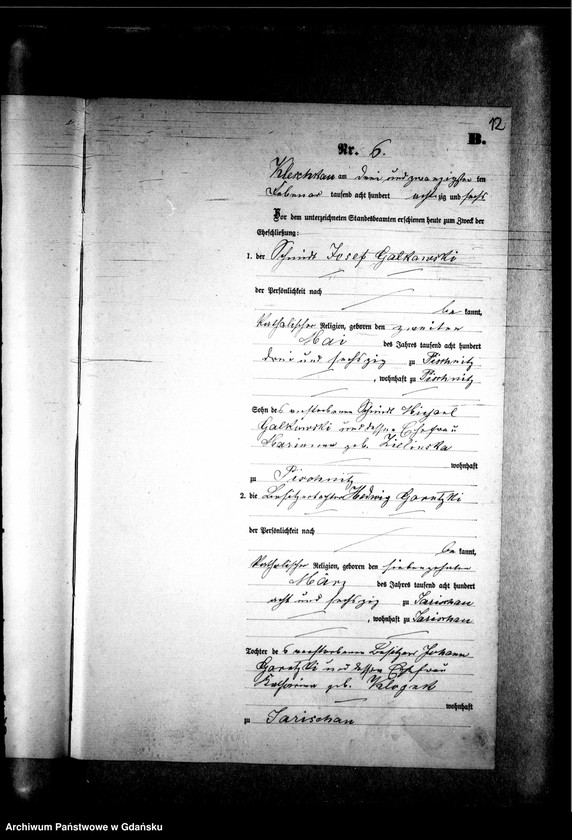 12
B.
Nr. 6.
Kleschkau am drei und zwanzigsten ten
Februar tausend acht hundert achtzig und sechs
Vor dem unterzeichneten Standesbeamten erschienen heute zum Zweck der
Eheschließung:
1. der Schmidt Josef Galkowski
der Persönlichkeit nach
be kannt,
katholischer Religion, geboren den zweiten
Mai des Jahres tausend acht hundert
drei und sechszig zu Pischnitz
, wohnhaft zu Pischnitz
Sohn des verstorbenen Schmidt Michael
Galkowski und dessen Ehefrau
Marianna geb. Zielinska
wohnhaft
zu Pischnitz
2. die Besitzertochter Hedwig Goretzki
der Persönlichkeit nach
be kannt,
katholischer Religion, geboren den siebenzehnten
März des Jahres tausend acht hundert
acht und sechszig zu Jarischau
, wohnhaft zu Jarischau
Tochter des verstorbenen Besitzers Johann
Goretzki und dessen Ehefrau
Katharina geb.
wohnhaft
zu Jarischau
Archiwum Państwowe w Gdańsku